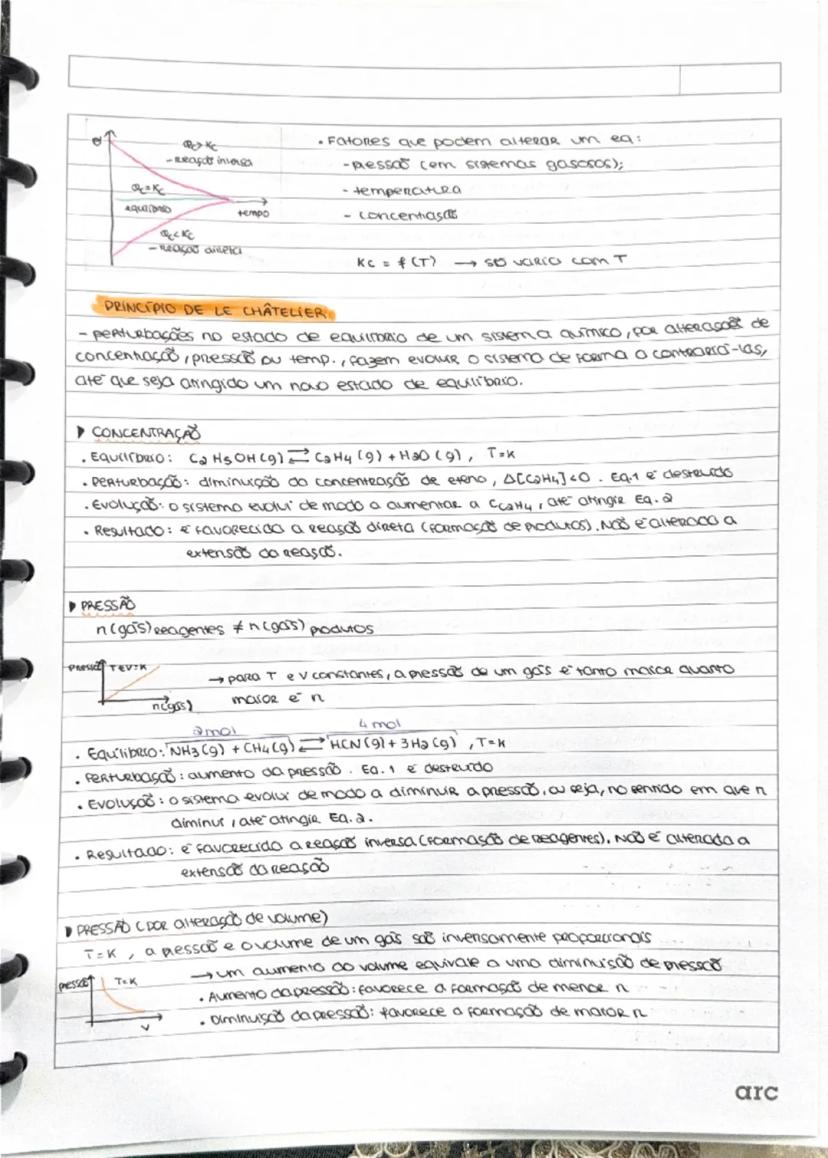 Q
Qc>Kc
- Reação inversa
Qc=Kc
equilíbrio
tempo
Qc<Kc
- Reação direta
• Fatores que podem alterar um eq:
- pressão (em sistemas gasosos);
- temperatura
- concentração
Kc = f(T) → só varia com T
PRINCÍPIO DE LE CHÂTELIER
- perturbações no estado de equilíbrio de um sistema químico, por alterações de
concentração, pressão ou temp., fazem evoluir o sistema de forma a contrariá-las,
até que seja atingido um novo estado de equilíbrio.
CONCENTRAÇÃO
• Equilíbrio: C2H5OH(g) ⇄ C2H4(g) + H2O(g), T=K
• Perturbação: diminuição da concentração de eteno, Δ[C2H4]<0. Eq.1 é destruído
• Evolução: o sistema evolui de modo a aumentar a CC2H4, até atingir Eq. 2
• Resultado: é favorecida a reação direta (formação de produtos). Não é alterada a
extensão da reação.
PRESSÃO
n(gás)reagentes ≠ n(gás)produtos
Pressão T e V=K
n(gás)
→ para T e V constantes, a pressão de um gás é tanto maior quanto
maior é n
2mol 4 mol
• Equilíbrio: NH3(g) + CH4(g) ⇄ HCN(g) + 3H2(g), T=K
• Perturbação: aumento da pressão. Eq.1 é destruído
• Evolução: o sistema evolui de modo a diminuir a pressão, ou seja, no sentido em que n
diminui, até atingir Eq. 2.
• Resultado: é favorecida a reação inversa (formação de reagentes). Não é alterada a
extensão da reação
PRESSÃO (por alteração de volume)
T=K, a pressão e o volume de um gás são inversamente proporcionais
pressão T=K
V
→ um aumento do volume equivale a uma diminuisão de pressão
• Aumento da pressão: favorece a formação de menor n
• Diminuição da pressão: favorece a formação de maior n
arc